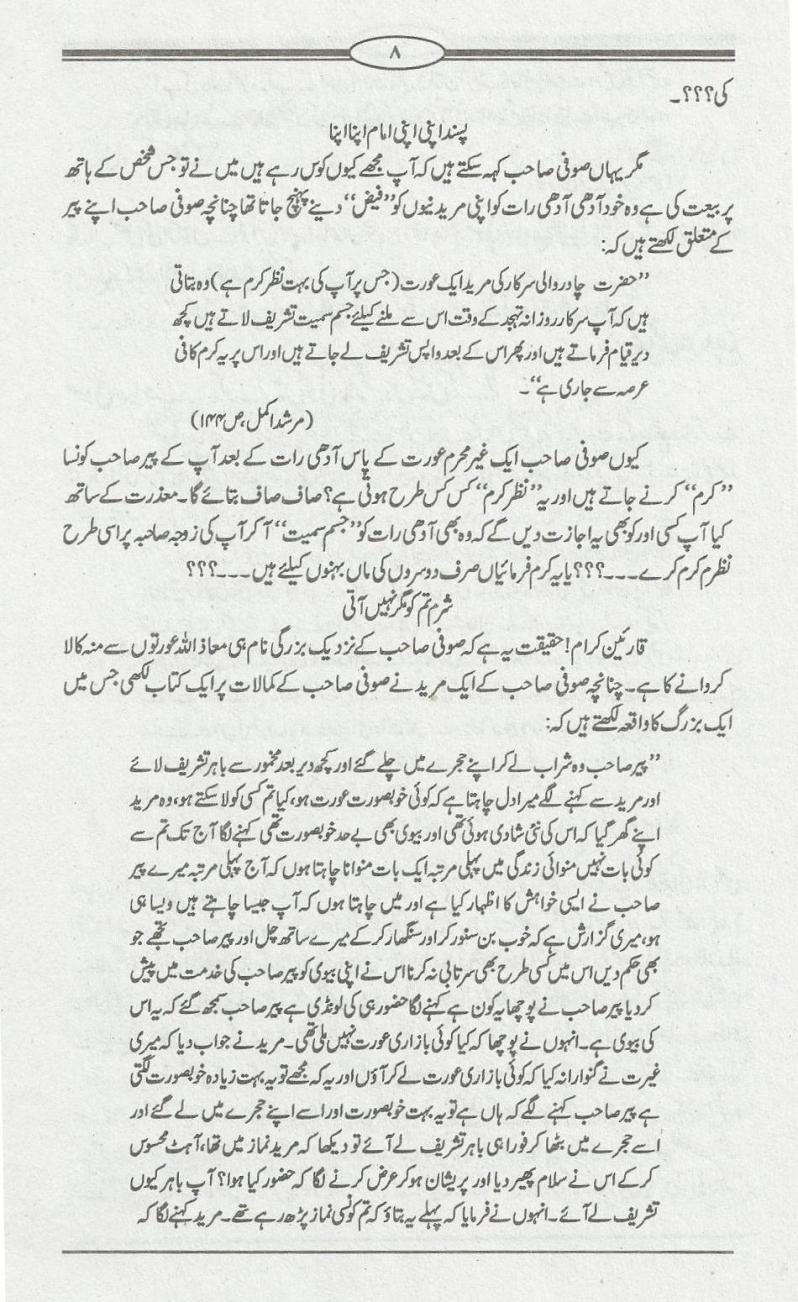 ۸
کی؟؟؟۔
پسند اپنی اپنی امام اپنا اپنا
مگر یہاں صوفی صاحب کہہ سکتے ہیں کہ آپ مجھے کیوں کوس رہے ہیں میں نے تو جس شخص کے ہاتھ
پر بیعت کی ہے وہ خود آدھی آدھی رات کو اپنی مریدنیوں کو ”فیض“ دینے پہنچ جاتا تھا چنانچہ صوفی صاحب اپنے پیر
کے متعلق لکھتے ہیں کہ:
”حضرت چادر والی سرکار کی مرید ایک عورت (جس پر آپ کی بہت نظر کرم ہے) وہ بتاتی
ہیں کہ آپ سرکار روزانہ تہجد کے وقت اس سے ملنے کیلئے جسم سمیت تشریف لاتے ہیں کچھ
دیر قیام فرماتے ہیں اور پھر اس کے بعد واپس تشریف لے جاتے ہیں اور اس پر یہ کرم کافی
عرصہ سے جاری ہے“۔
(مرشد اکمل، ص۱۴۴)
کیوں صوفی صاحب ایک غیر محرم عورت کے پاس آدھی رات کے بعد آپ کے پیر صاحب کونسا
”کرم“ کرنے جاتے ہیں اور یہ ”نظر کرم“ کس کس طرح ہوتی ہے؟ صاف صاف بتائے گا۔ معذرت کے ساتھ
کیا آپ کسی اور کو بھی یہ اجازت دیں گے کہ وہ بھی آدھی رات کو ”جسم سمیت“ آکر آپ کی زوجہ صاحبہ پر اسی طرح
نظرم کرم کرے۔۔۔؟؟؟ یا یہ کرم فرمائیاں صرف دوسروں کی ماں بہنوں کیلئے ہیں۔۔۔؟؟؟
شرم تم کو مگر نہیں آتی
قارئین کرام! حقیقت یہ ہے کہ صوفی صاحب کے نزدیک بزرگی نام ہی معاذ اللہ عورتوں سے منہ کالا
کروانے کا ہے۔ چنانچہ صوفی صاحب کے ایک مرید نے صوفی صاحب کے کمالات پر ایک کتاب لکھی جس میں
ایک بزرگ کا واقعہ لکھتے ہیں کہ:
”پیر صاحب وہ شراب لے کر اپنے حجرے میں چلے گئے اور کچھ دیر بعد مخمور سے باہر تشریف لائے
اور مرید سے کہنے لگے میرا دل چاہتا ہے کہ کوئی خوبصورت عورت ہو، کیا تم کسی کو لا سکتے ہو، وہ مرید
اپنے گھر گیا کہ اس کی نئی شادی ہوئی تھی اور بیوی بھی بے حد خوبصورت تھی کہنے لگا آج تک تم سے
کوئی بات نہیں منوائی زندگی میں پہلی مرتبہ ایک بات منوانا چاہتا ہوں کہ آج پہلی مرتبہ میرے پیر
صاحب نے ایسی خواہش کا اظہار کیا ہے اور میں چاہتا ہوں کہ آپ جیسا چاہتے ہیں ویسا ہی
ہو، میری گزارش ہے کہ خوب بن سنور کر اور سنگھار کر کے میرے ساتھ چل اور پیر صاحب تجھے جو
بھی حکم دیں اس میں کسی طرح بھی سرتابی نہ کرنا اس نے اپنی بیوی کو پیر صاحب کی خدمت میں پیش
کردیا پیر صاحب نے پوچھا یہ کون ہے کہنے لگا حضور ہی کی لونڈی ہے پیر صاحب سمجھ گئے کہ یہ اس
کی بیوی ہے۔ انہوں نے پوچھا کہ کیا کوئی بازاری عورت نہیں ملی تھی۔ مرید نے جواب دیا کہ میری
غیرت نے گنوارا نہ کیا کہ کوئی بازاری عورت لے کر آؤں اور یہ کہ مجھے تو یہ بہت زیادہ خوبصورت لگتی
ہے پیر صاحب کہنے لگے کہ ہاں ہے تو یہ بہت خوبصورت اور اسے اپنے حجرے میں لے گئے اور
اسے حجرے میں بٹھا کر فورا ہی باہر تشریف لے آئے تو دیکھا کہ مرید نماز میں تھا، آہٹ محسوس
کر کے اس نے سلام پھیر دیا اور پریشان ہو کر عرض کرنے لگا کہ حضور کیا ہوا؟ آپ باہر کیوں
تشریف لے آئے۔ انہوں نے فرمایا کہ پہلے یہ بتاؤ کہ تم کونسی نماز پڑھ رہے تھے۔ مرید کہنے لگا کہ